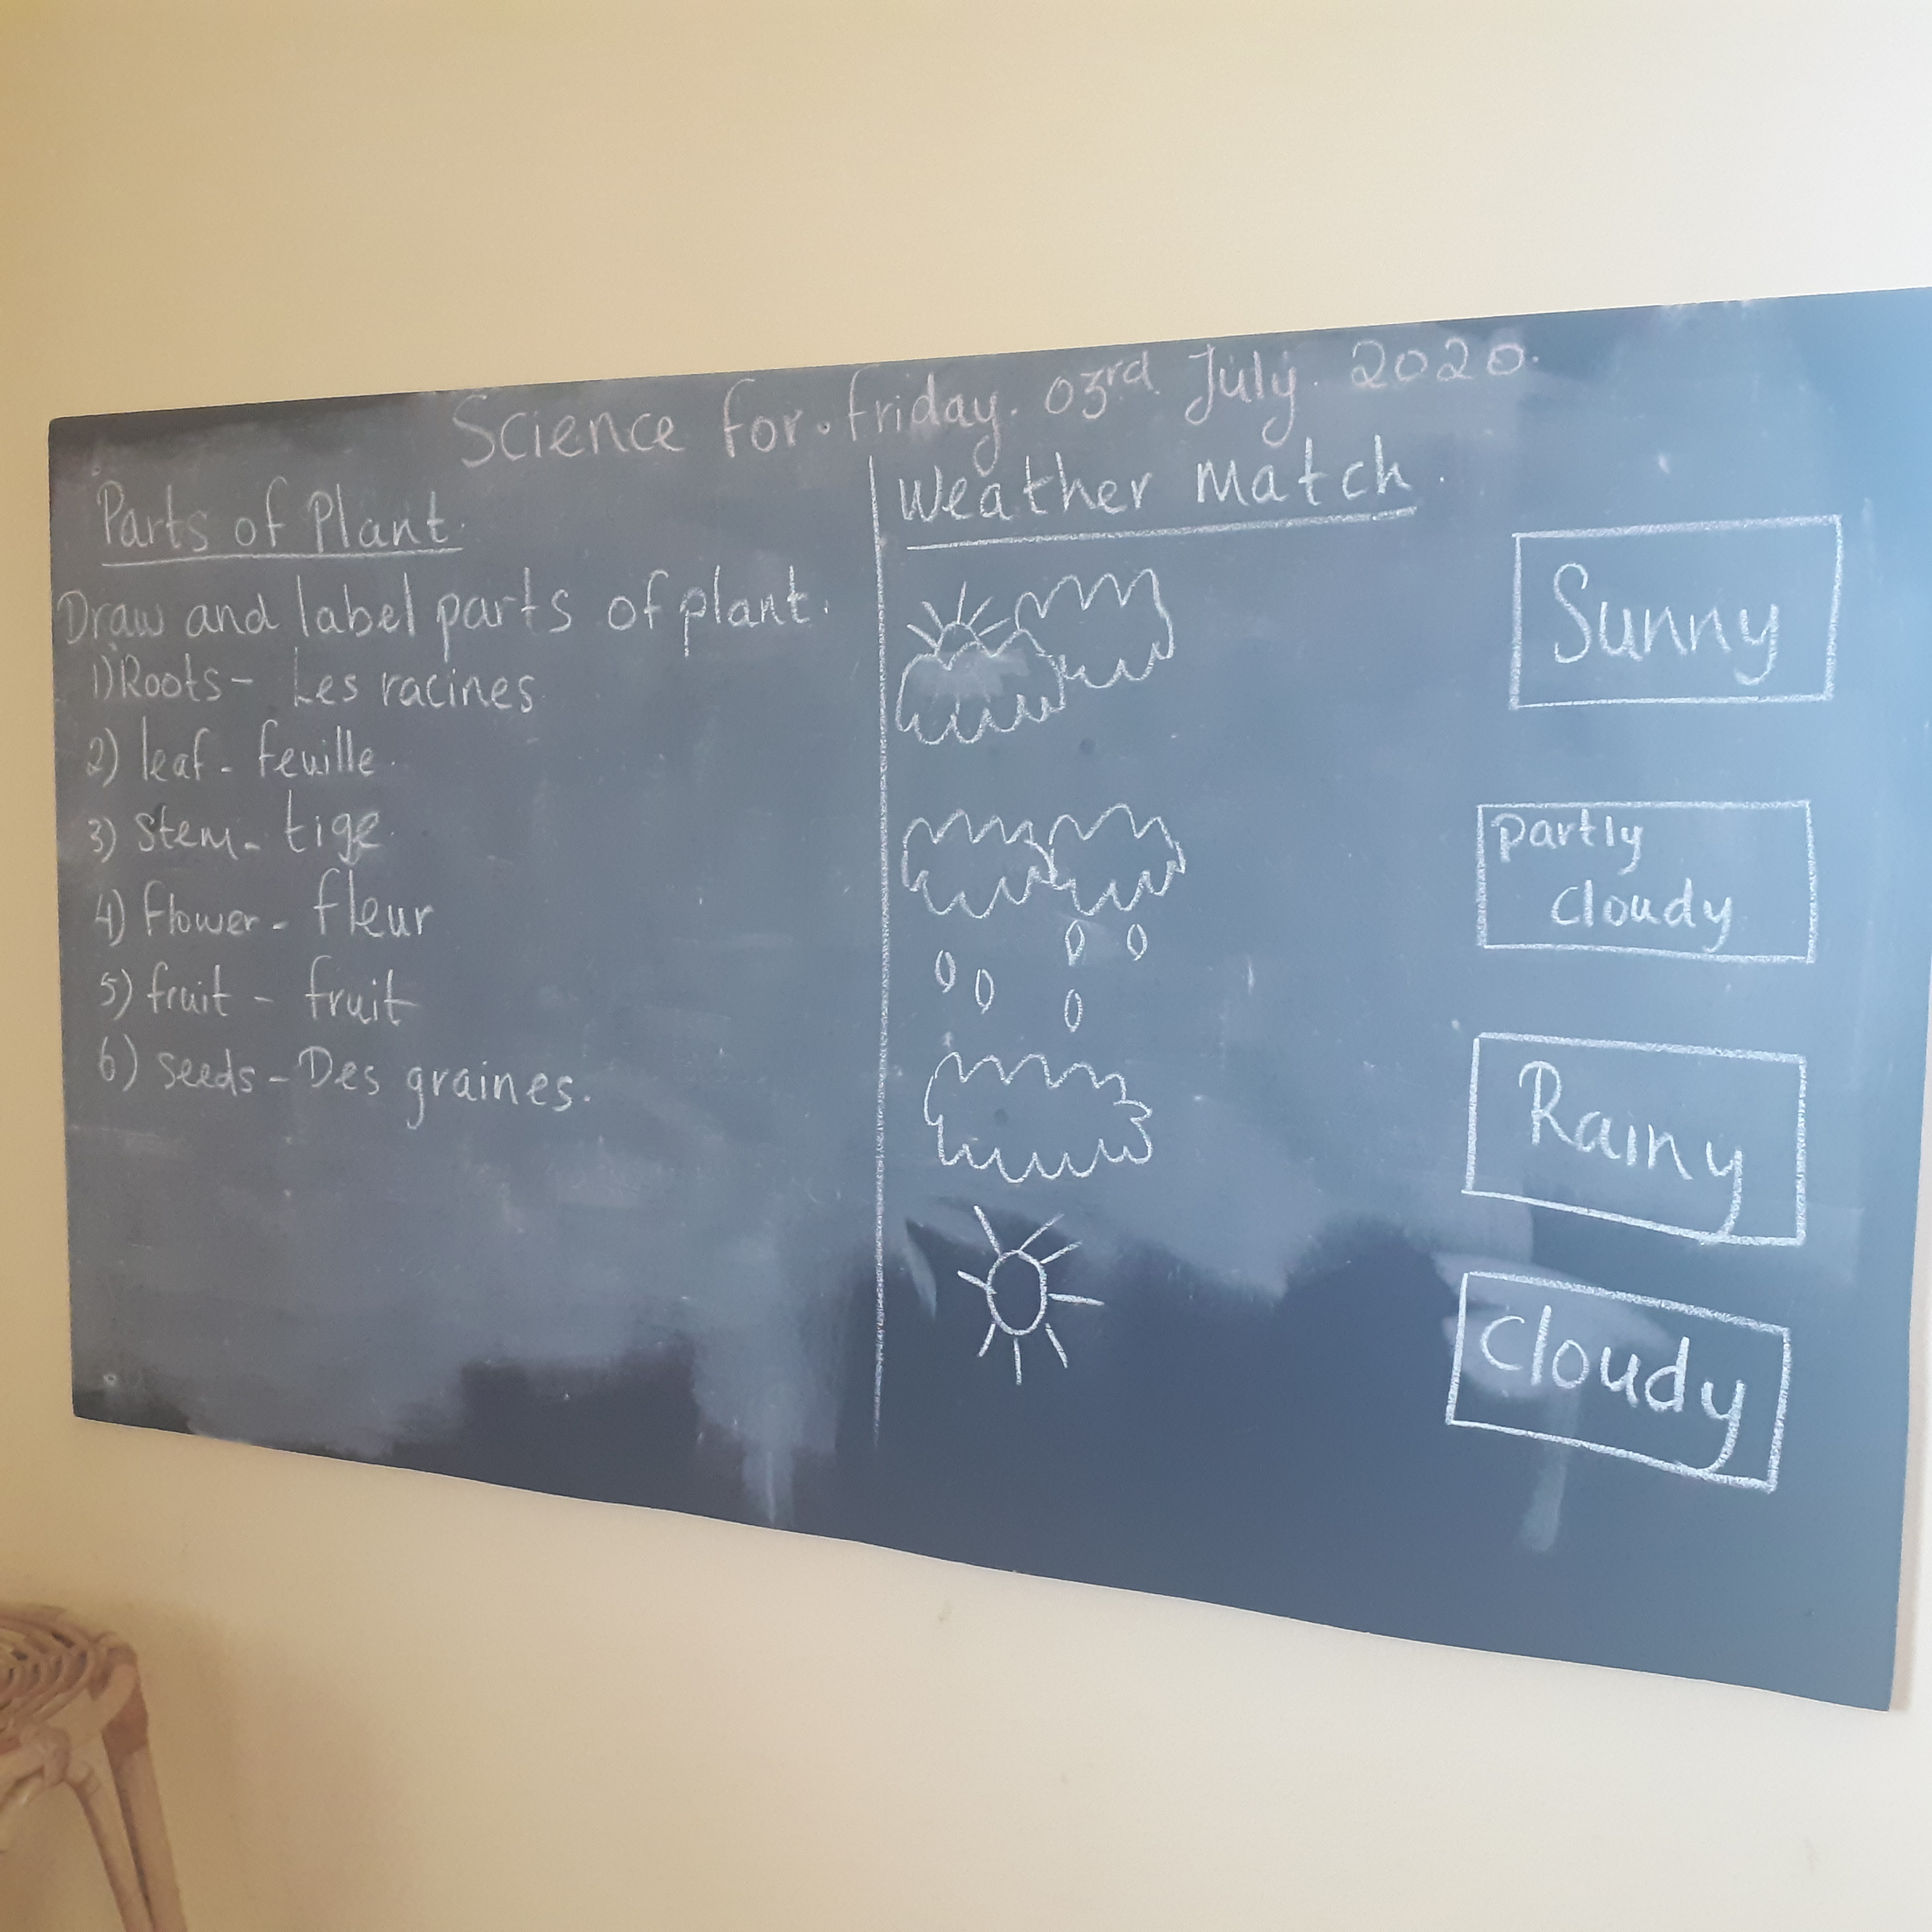 Science for. friday. 03rd July. 2020.
Parts of Plant.
Draw and label parts of plant.
1) Roots - Les racines
2) leaf - feuille.
3) Stem - tige.
4) Flower - fleur
5) fruit - fruit
6) seeds - Des graines.
Weather Match.
Sunny
partly
cloudy
Rainy
Cloudy